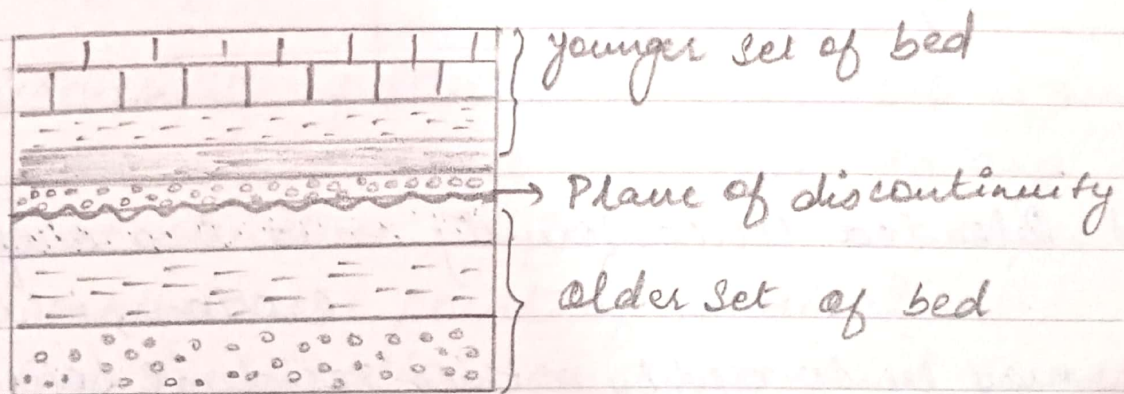 younger set of bed
Plane of discontinuity
older set of bed